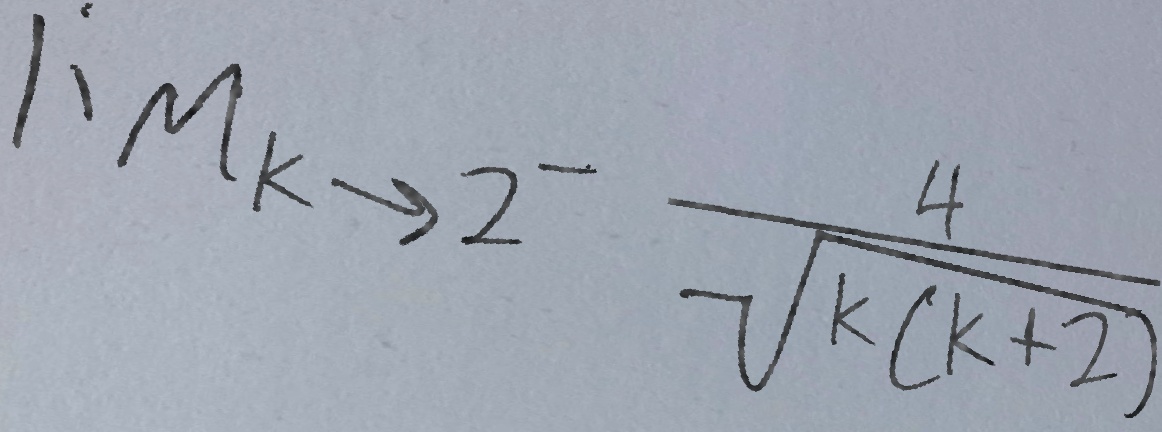 lim_{k→2^-} \frac{4}{\sqrt{k(k+2)}}